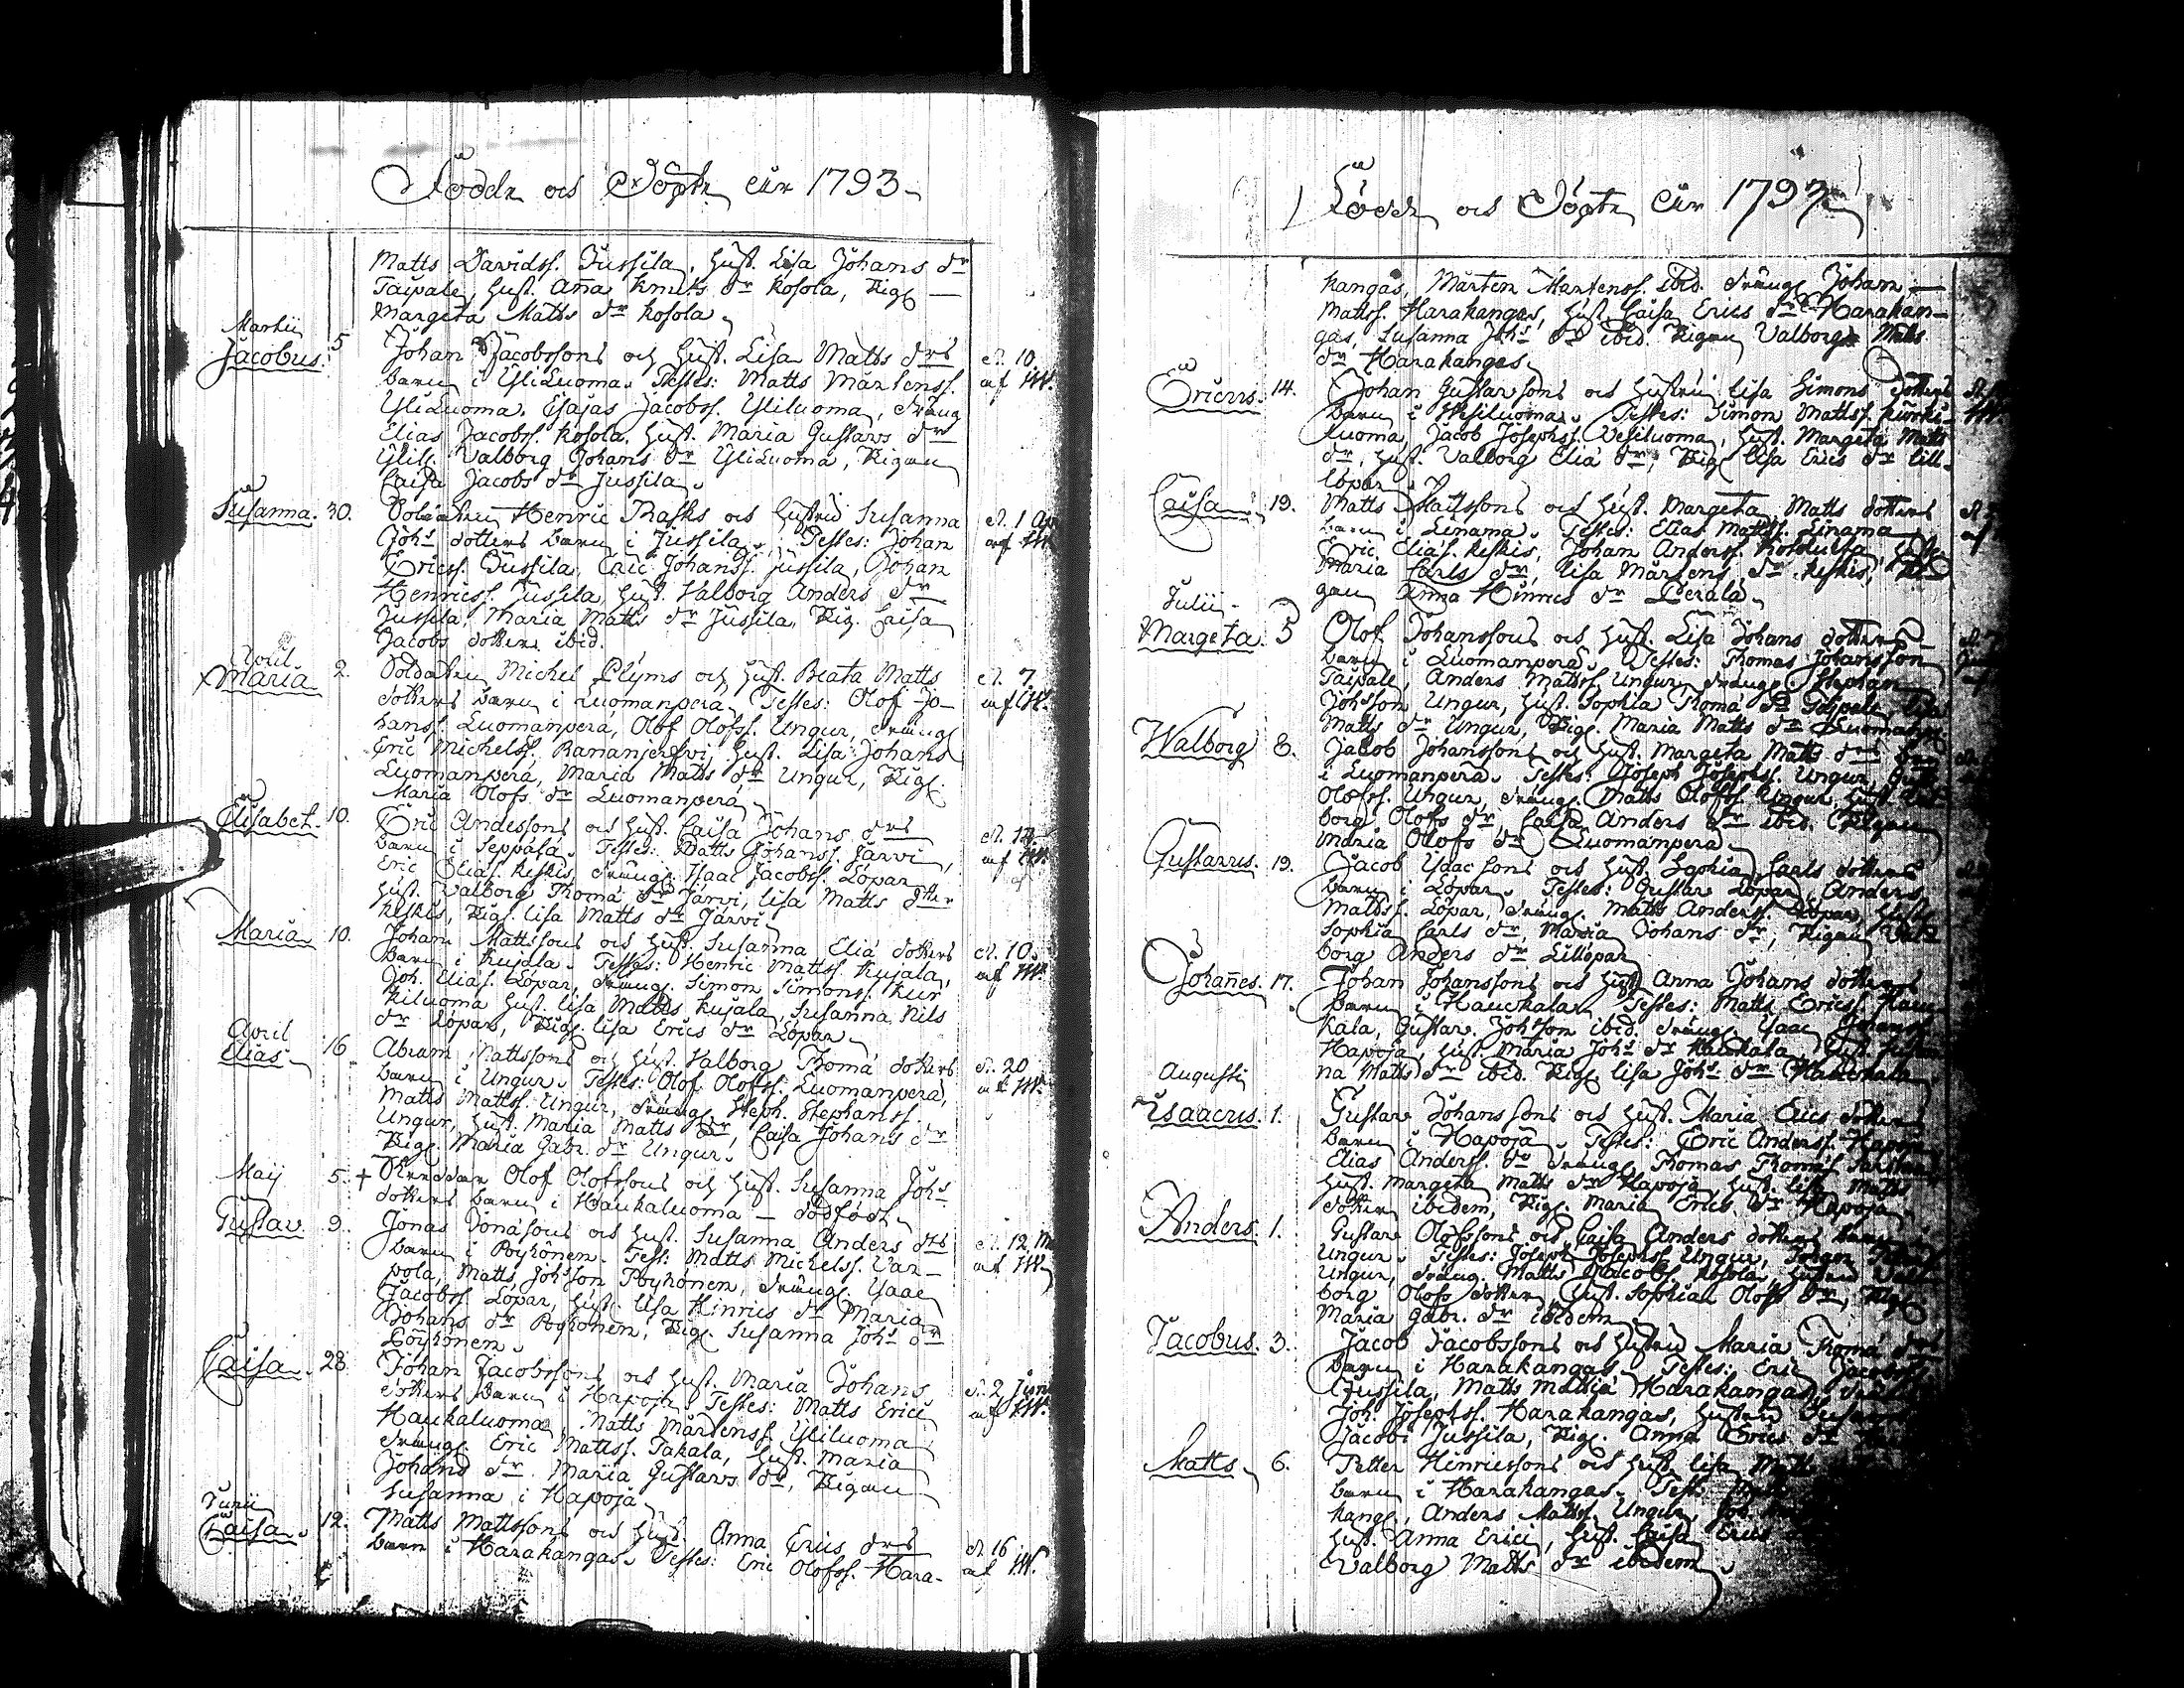 Födde och Döpte åhr 1793
Matts Davidss. Jussila, Hust. Lisa Johans dr
Taipale, Hust. Aña Knuts dr Kosola, Pig.
Margeta Matts dr Kosola
Martii
Jacobus. 5 Johan Jacobssons och Hust. Lisa Matts drs d. 10.
barn i Yliluoma. Testes: Matts Mårtenss. af
Yliluoma, Esajas Jacobss. Yliluoma, dräng
Elias Jacobss. Kosola, Hust. Maria Gustavs dr
Ylil. Valborg Johans dr Yliluoma, Pigan
Caisa Jacobs dr Jussila.
Susanna. 30. Soldaten Henric Rasks och Hustru Susanna d. 1 Ap
Johs dotters barn i Jussila. Testes: Johan af
Ericss. Jussila, Eric Johanss. Jussila, Johan
Henricss. Jussila, Hust. Valborg Anders dr
Jussila, Maria Matts dr Jussila, Pig. Caisa
Jacobs dotter ibid.
April
Maria 2. Soldaten Michel Plyms och Hust. Beata Matts d. 7.
dotters barn i Luomanperä, Testes: Olof Jo- af
hanss. Luomanperä, Olof Olofss. Ungur, dräng.
Eric Michelss. Hust. Lisa Johans
Luomanperä, Maria Matts dr Ungur, Pig.
Maria Olofs dr Luomanperä
Elisabet. 10. Eric Anderssons och Hust. Caisa Johans drs d. 14
barn i Seppälä. Testes: Matts Johanss. Järvi, af
Eric Eliass. Keskis, dräng. Isaac Jacobss. Löpar
Hust. Valborg Thomæ dr Järvi, Lisa Matts dtter
Keskis, Pig. Lisa Matts dr Järvi
Maria 10. Johan Mattssons och Hust. Susanna Eliæ dotters d. 10.
barn i Kujala. Testes: Henric Mattss. Kujala, af
Joh. Eliass. Löpar, dräng. Simon Simonss. Kur
kiluoma Hust. Lisa Matts Kujala, Susanna Nils
dr Löpar, Pig. Lisa Erics dr Löpar
April
Elias 16 Abram Mattssons och Hust. Valborg Thomæ dotters d. 20
barn i Ungur. Testes: Olof Olofss. Luomanperä, af
Matts Mattss. Ungur, dräng. Steph. Stephanss.
Ungur, Hust. Maria Matts dr, Caisa Johans dr
Pig. Maria Gabr. dr Ungur.
Maij 5. + Olof Olofssons och Hust. Susanna Johs
dotters barn i Haukaluoma — dödfödt
Gustav. 9. Jonas Jonæsons och Hust. Susanna Anders drs d. 12. M
barn i Pöyhönen. Test: Matts Michelss. Var- af
pola, Matts Johsson Pöyhönen, dräng. Ysaac
Jacobss. Löpar, Hust. Lisa Hinrics dr Maria
Johans dr Pöyhönen, Pig. Susanna Johs dr
Pöyhönen.
Caisa. 28 Johan Jacobssons och Hust. Maria Johans d. 2 Juni
dotters barn i Hapoja. Testes: Matts Erici af
Haukaluoma, Matts Mårtenss. Yliluoma
dräng. Eric Mattss. Takala, Hust. Maria
Johans dr. Maria Gustavs dr, Pigan
Susanna i Hapoja
Junii
Caisa. 12. Matts Mattssons och Hust. Anna Erics drs d. 16
barn i Harakangas. Testes: Eric Olofss. Hara- af
Födde och Döpte åhr 1793
kangas, Mårten Mårtenss. ibid. dräng Johan
Mattss. Harakangas, Hust. Caisa Erics dr Harakan-
gas, Susanna Johs dr ibid. Pigan Valborg Matts
dr Harakangas
Ericus. 14. Johan Gustavsons och Hustru Lisa Simons dotters
barn i Vesiluoma. Testes: Simon Mattss. Kurki-
luoma, Jacob Josephss. Vesiluoma, Hust. Margeta Matts
dr, Hust. Valborg Eliæ dr, Pig. Lisa Erics dr Lill-
löpar.
Caisa 19. Matts Mattssons och Hust. Margeta Matts dotters
barn i Linama. Testes: Elias Mattss. Linama
Eric Eliass. Keskis, Johan Anderss.
Maria Carls dr, Lisa Mårtens dr Keskis,
gan Anna Hinrics dr Perälä
Julii
Margeta. 5 Olof Johanssons och Hust. Lisa Johans dotters
barn i Luomanperä. Testes: Thomas Johansson
Taipale, Anders Mattss. Ungur, dräng Stephan
Johsson Ungur, Hust. Sophia Thomæ dr Taipale,
Matts dr Ungur, Pig. Maria Matts dr Luomanp.
Walborg 8. Jacob Johanssons och Hust. Margeta Matts drs barn
i Luomanperä. Testes: Joseph Josephss. Ungur,
Olofss. Ungur, dräng. Matts Olofss. Ungur, Hust. Val-
borg Olofs dr Caisa Anders dr ibid. Pigan
Maria Olofs dr Luomanperä
Gustavus. 19. Jacob Ysacsons och Hust. Sophia Carls dotters
barn i Löpar. Testes: Gustav Löpar, Anders
Mattss. Löpar, dräng. Matts Anderss. Löpar, Hust.
Sophia Carls dr, Maria Johans dr, Pigan Val-
borg Anders dr Lillöpar
Johañes. 17. Johan Johanssons och Hust. Anna Johans dotters
barn i Hauckala. Testes: Matts Ericss. Hau
kala, Gustav Johsson ibid. dräng. Ysaac Johanss.
Hapoja, Hust. Maria Johs dr Hauckala, Hust. Susan
na Matts dr ibid. Pig. Lisa Johs dr Hauckala
Augusti
Isaacus. 1. Gustav Johanssons och Hust. Maria Erics dotters
barn i Hapoja. Testes: Eric Anderss. Hapoja
Elias Anderss. do dräng. Thomas Thomass.
Hust. Margeta Matts dr Hapoja, Hust. Lisa Matts
dotter ibidem, Pig. Maria Erics dr Hapoja.
Anders. 1. Gustav Olofssons och Caisa Anders dotters barn i
Ungur. Testes: Joseph Josephss. Ungur, Johan
Ungur, dräng. Matts Jacobss. Kosola, Hustru Val
borg Olofs dotter, Hust. Sophia Olofs dr, Pig.
Maria Gabr. dr ibidem
Jacobus. 3. Jacob Jacobssons och Hustru Maria Thomæ drs
barn i Harakangas. Testes: Eric Jacobss.
Jussila, Matts Mattiæ Harakangas,
Joh. Josephss. Harakangas, Hustru Susanna
Jacobi Jussila, Pig. Anna Erics dr
Matts 6. Petter Hinricssons och Hust. Lisa Matts
barn i Harakangas. Test:
kang., Anders Mattss. Ungur, Joh.
Hust. Anna Erici, Hust. Caisa Erics
Valborg Matts dr ibidem.